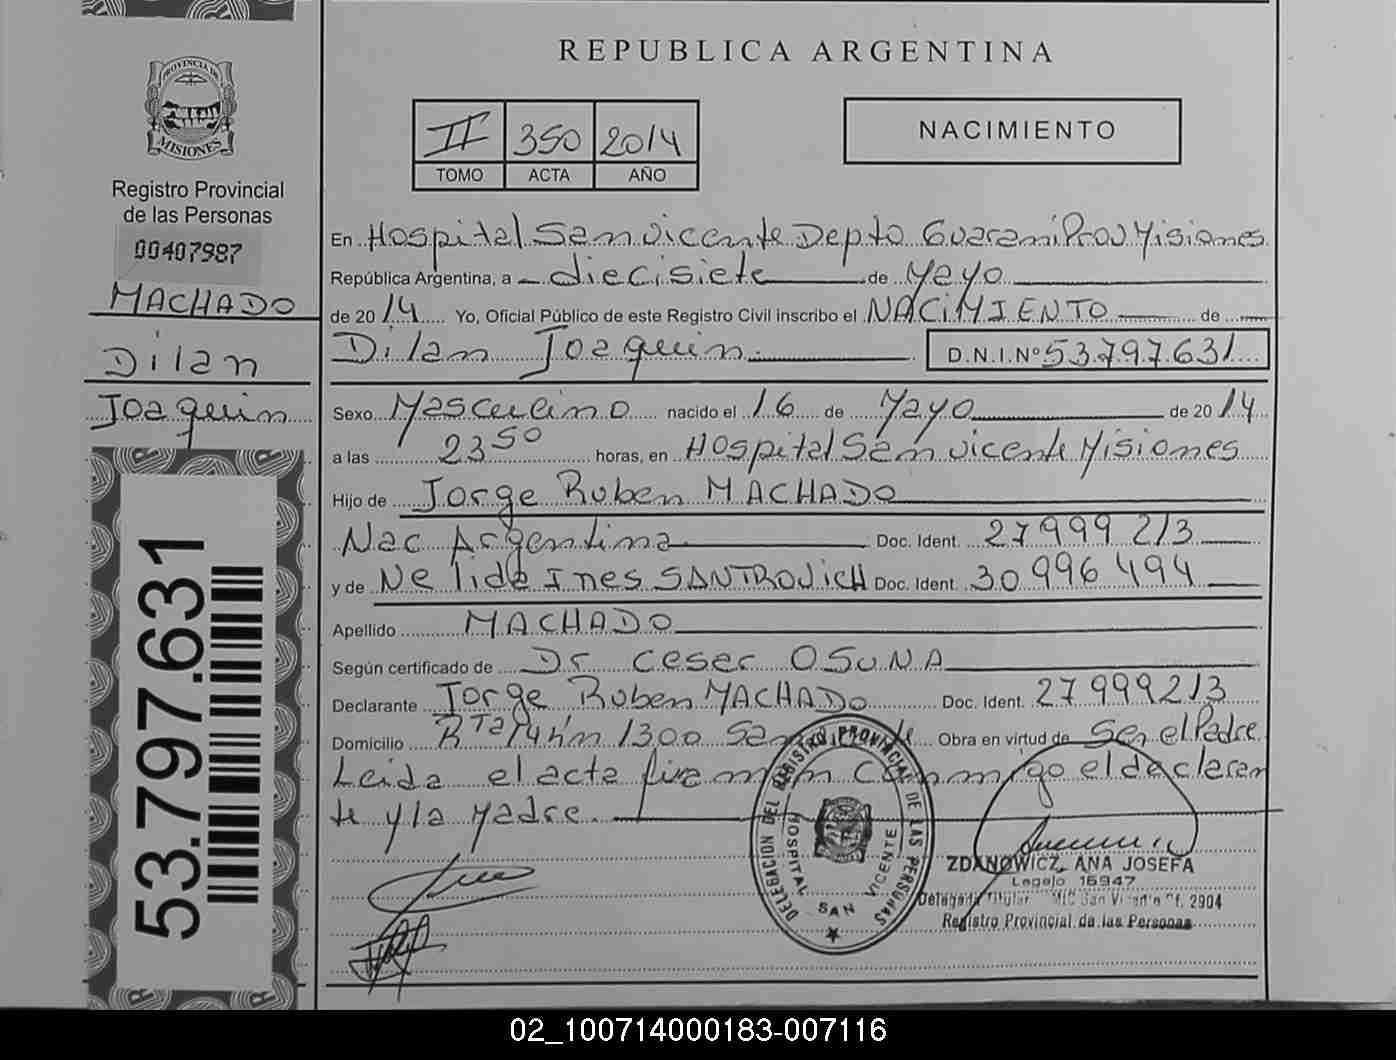 REPUBLICA ARGENTINA
PROVINCIA DE MISIONES
Registro Provincial
de las Personas
00407987
MACHADO
Dilan
Joaquin
53.797.631
II 350 2014
TOMO ACTA AÑO
NACIMIENTO
En Hospital San vicente Depto Guarani Prov Misiones
República Argentina, a diecisiete de Mayo
de 2014 Yo, Oficial Público de este Registro Civil inscribo el NACIMIENTO de
Dilan Joaquin D.N.I.Nº 53.797.631
Sexo Masculino nacido el 16 de Mayo de 2014
a las 23 50 horas, en Hospital San vicente Misiones
Hijo de Jorge Ruben MACHADO
Nac Argentina Doc. Ident. 27 999 213
y de Nelida Ines SANTROVICH Doc. Ident. 30 996 494
Apellido MACHADO
Según certificado de Dr Cesar OSUNA
Declarante Jorge Ruben MACHADO Doc. Ident. 27 999 213
Domicilio Rta 14 km 1300 San Obra en virtud de Ser el Padre
Leida el acta firman conmigo el declaran
te y la Madre.
DELEGACION DEL REGISTRO PROVINCIAL DE LAS PERSONAS
HOSPITAL SAN VICENTE
ZDANOWICZ, ANA JOSEFA
Legajo 16947
Delegada Titular San Vicente Of. 2904
Registro Provincial de las Personas
02_100714000183-007116